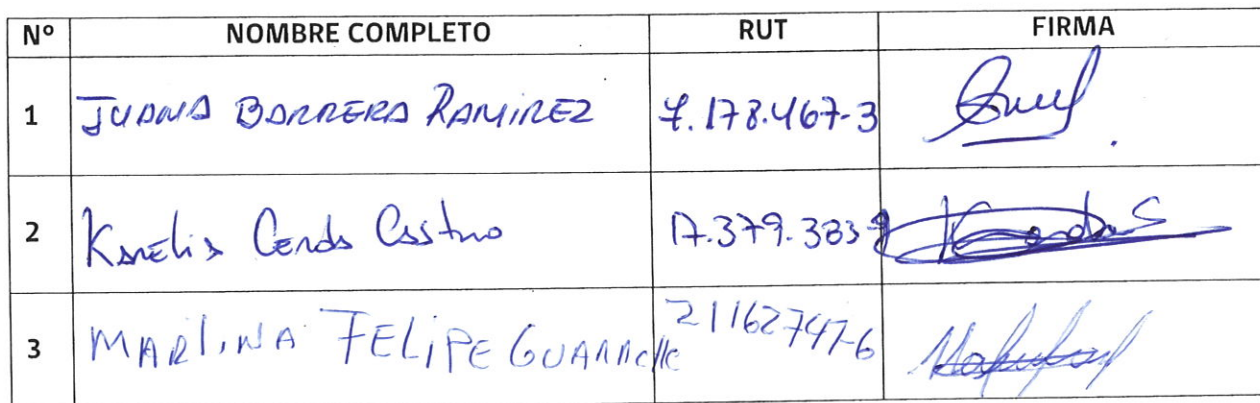 Nº NOMBRE COMPLETO RUT FIRMA
1 JUANA BARRERA RAMIREZ 7.178.467-3
2 Karelia Cerda Castro 17.379.383-9
3 MARLINA FELIPE 21162747-6